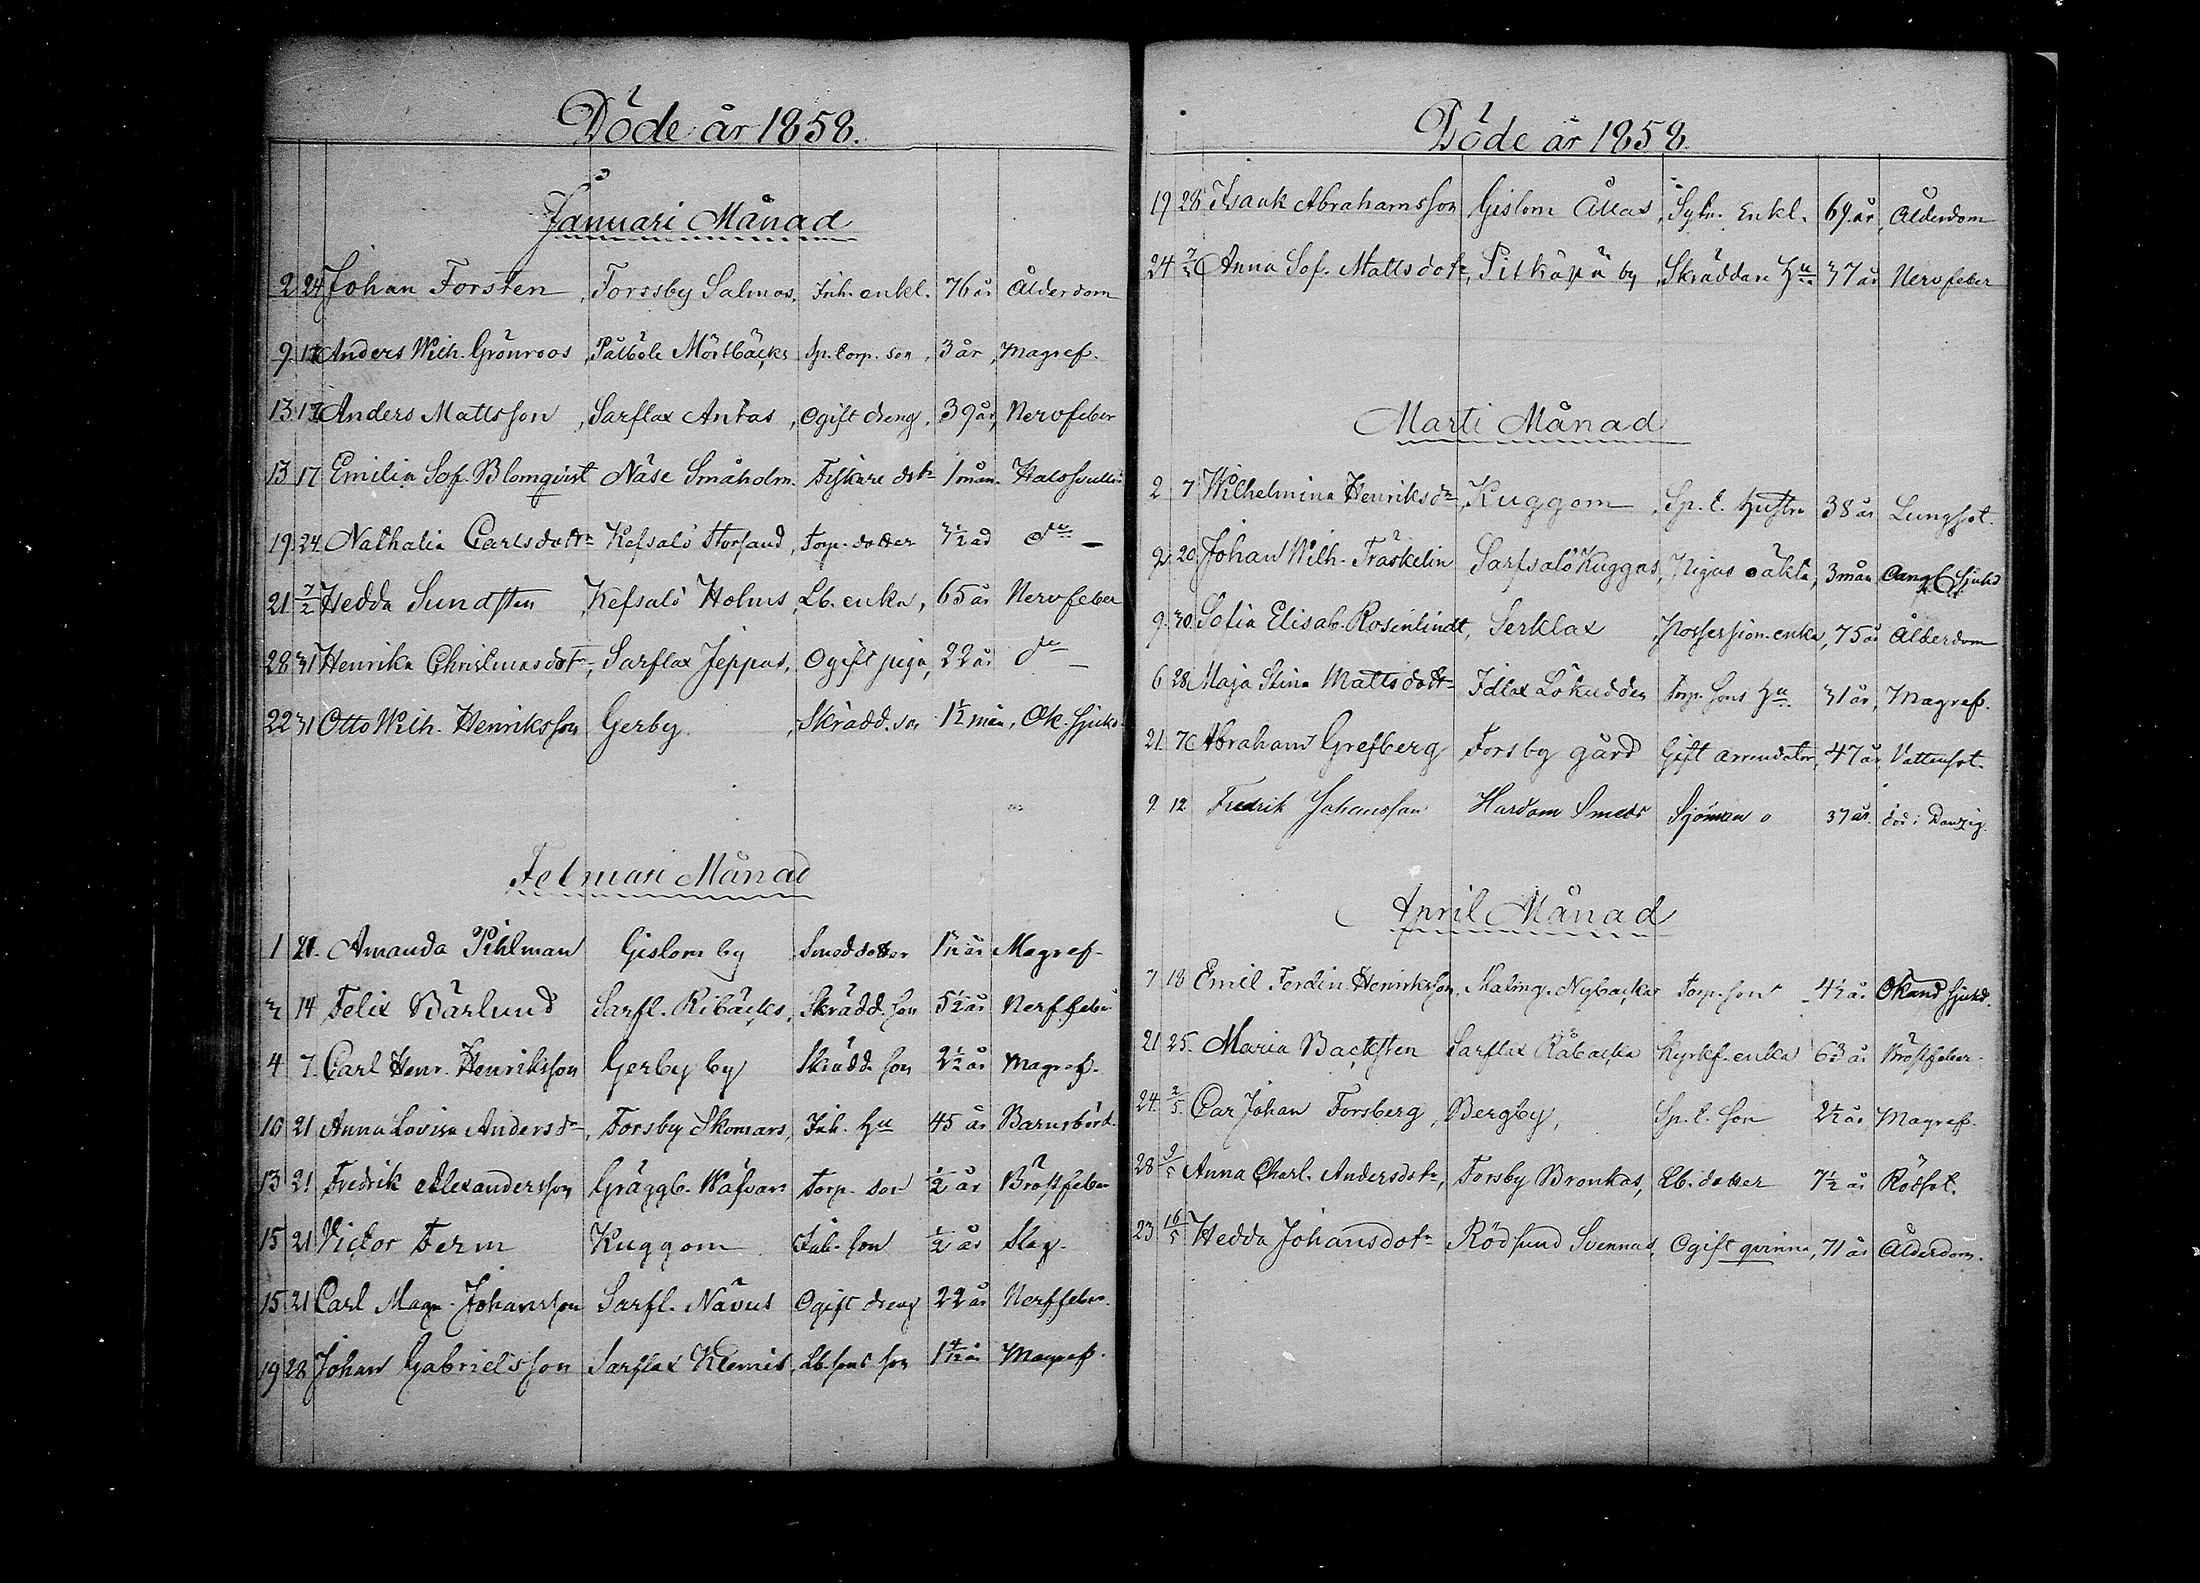 Döde år 1858.
Januari Månad
2 24 Johan Forsten, Forssby Salmas, Inh. enkl. 76 år Ålderdom
9 Anders Wilh. Grönroos, Påtböle Mörtbäcks Sp. torp. son, 3 år, Magref.
13 17 Anders Mattsson, Sarflax Antas, Ogift dreng, 39 år, Nervfeber
13 17 Emilia Sof. Blomqvist Näse Småholm. Fiskare dotr 1 mån.
19 24 Nathalia Carlsdottr Kefsalö Storsand, Torp. dotter do —
21 7/2 Hedda Sundsten, Kefsalö Holms, Lb. enka, 65 år Nervfeber
28 31 Henrika Christmasdotr, Sarflax Jeppas, Ogift piga, 22 år do —
22 31 Otto Wilh. Henriksson Gerby, Skrädd. son 1½ mån, Ok. sjukd.
Februari Månad
1 21. Amanda Pihlman Gislom by Smeddotter Magref.
3 14 Felix Bärlund Sarfl. Ribäcks, Skrädd. son 5½ år Nerffeber
4 7 Carl Henr. Henriksson Gerby by Skrädd. son 2½ år Magref.
10 21 Anna Lovisa Andersdr, Forsby Skomars, Inh. Hu 45 år Barnsbörd.
13 21 Fredrik Alexandersson Gräggb. Wäfvars Torp. son ½ år Bröstfeber
15 21 Victor Ferm Kuggom Inh. son ½ år Slag.
15 21 Carl Magn. Johansson Sarfl. Nävus Ogift dreng 22 år Nerffeber.
19 28 Johan Gabrielsson Sarflax Klemis, Lb. sons son 1 4/12 år Magref.
Döde år 1858.
19 28 Isaak Abrahamsson Gislom Allas, Sytn. Enkl. 69 år, Ålderdom
24 7/3 Anna Sof. Mattsdotr, Pitkäpä by, Skräddare Hu 37 år Nervfeber
Marti Månad
2 7 Wilhelmina Henriksdr, Kuggom, Sp. t. Hustru 38 år Lungsot.
2 20 Johan Wilh. Träskelin Sarfsalö Kuggas, Pigas oäkta, 3 mån
9 30 Sofia Elisab. Rosenlindt, Serklax, Possession. enka, 75 år Ålderdom
6 28 Maja Stina Mattsdottr Idlax Lökudden Torp. sons Hu 31 år, Magref.
21 Abraham Grefberg Forsby gård Gift arrendator, 47 år, Vattensot.
9 12 Fredrik Johansson Hardom Smeds Sjöman o 37 år. död i Danzig.
April Månad
7 18 Emil Ferdin. Henriksson, Skaling. Nybackas Torp. son 4½ år Okänd sjukd.
21 25. Maria Backsten Sarflax Råbacka Kyrkf. enka 63 år Bröstfeber.
24 2/5 Car Johan Forsberg, Bergby, Sp. t. son 2½ år Magref.
28 9/5 Anna Charl. Andersdotr, Forsby Bronkas, Lb. dotter 7½ år Rödsot.
23 16/5 Hedda Johansdotr Rödsund Svennas, Ogift qvinna, 71 år Ålderdom.